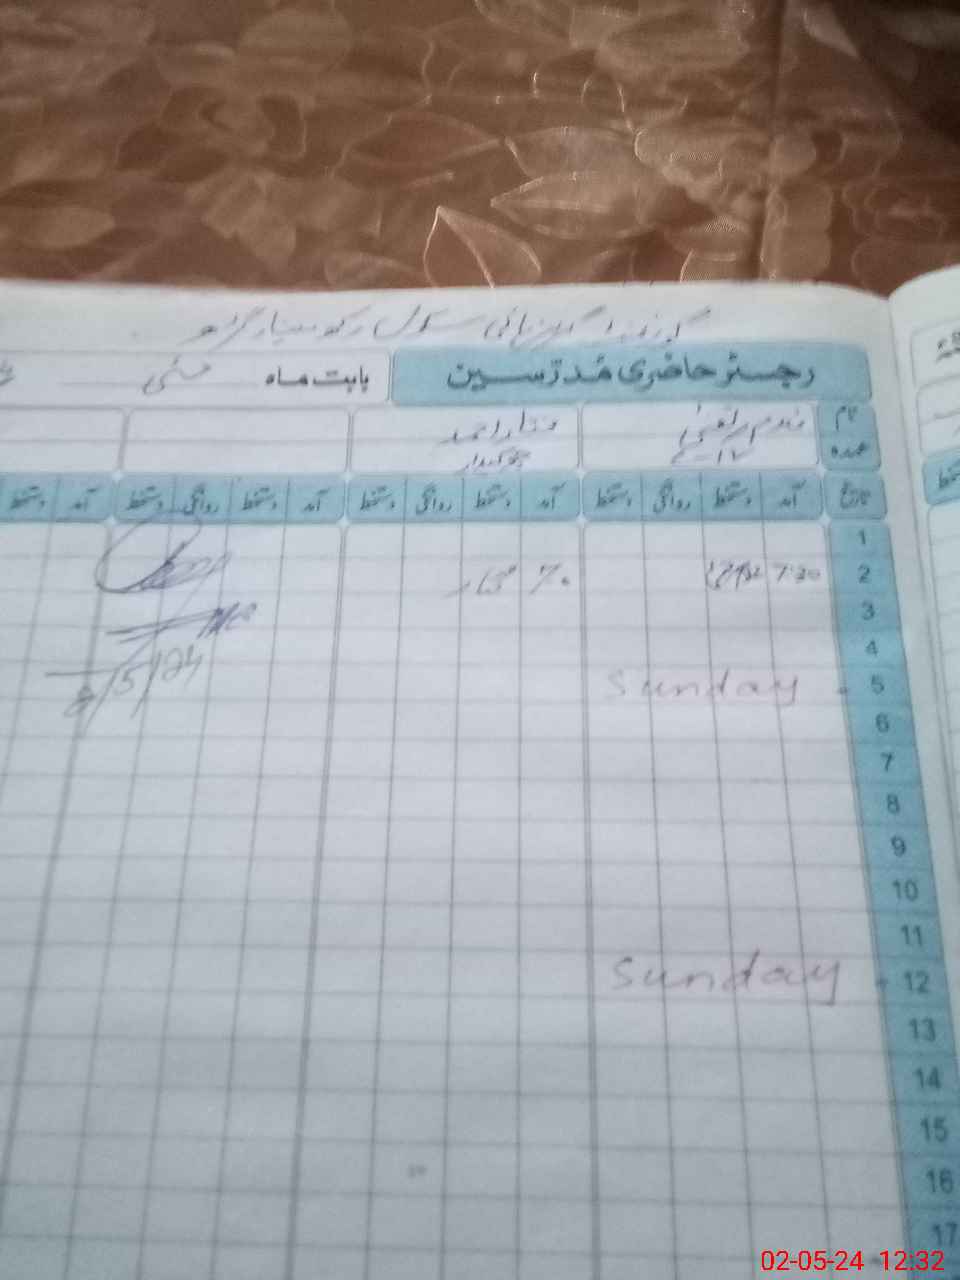 گورنمنٹ گرلز ہائی سکول
رجسٹر حاضری مدرسین بابت ماہ مئی
نام
عہدہ چوکیدار
تاریخ آمد دستخط روانگی دستخط آمد دستخط روانگی دستخط آمد دستخط روانگی دستخط آمد دستخط
1
2 7:30
3
4
5 - Sunday
6
7
8
9
10
11
12 - Sunday
13
14
15
16
17
2/5/24
02-05-24 12:32